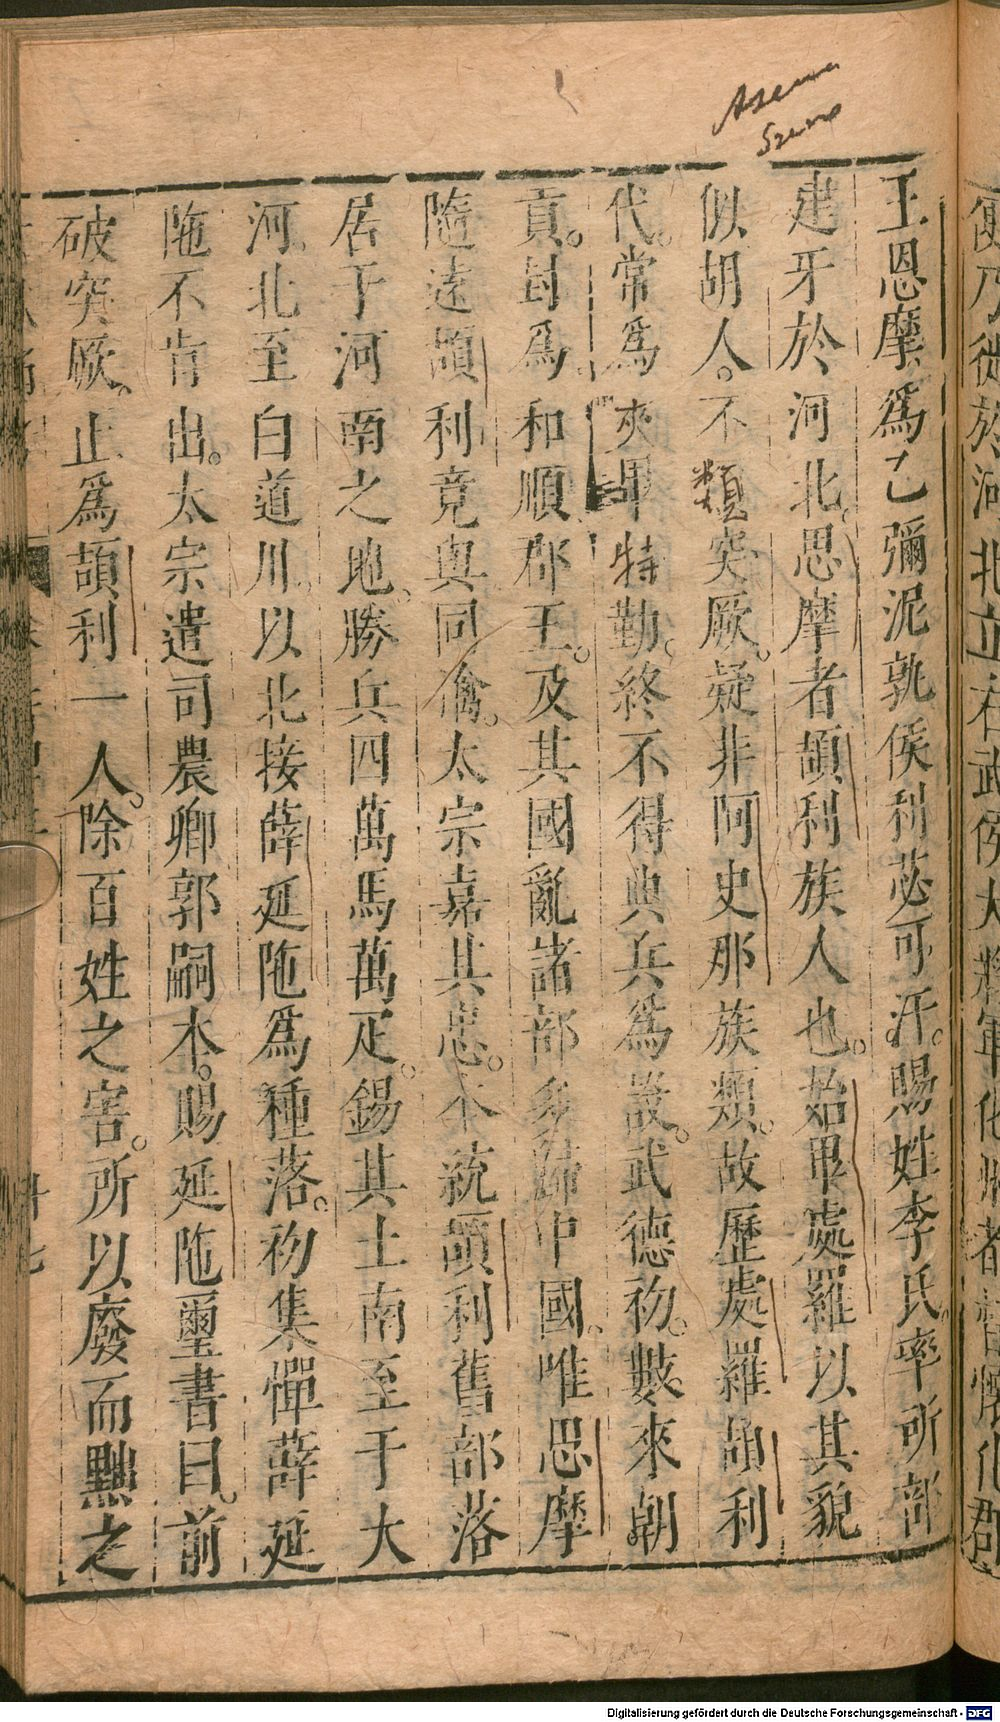 Asena
王恩摩爲乙彌泥孰俟利苾可汗賜姓李氏率所部
建牙於河北思摩者頡利族人也始畢處羅以其貌
似胡人不類突厥疑非阿史那族類故歷處羅頡利
代常爲夾畢特勤終不得典兵爲設武德初數來朝
貢封爲和順郡王及其國亂諸部多歸中國唯思摩
隨逐頡利竟與同擒太宗嘉其忠本統頡利舊部落
居于河南之地勝兵四萬馬萬疋錫其土南至于大
河北至白道川以北接薛延陁爲種落初集憚薛延
陁不肯出太宗遣司農卿郭嗣本賜延陁璽書曰前
破突厥止爲頡利一人除百姓之害所以廢而黜之
便乃徙於河北立右武侯大將軍化州都督懷化郡
Digitalisierung gefördert durch die Deutsche Forschungsgemeinschaft - DFG